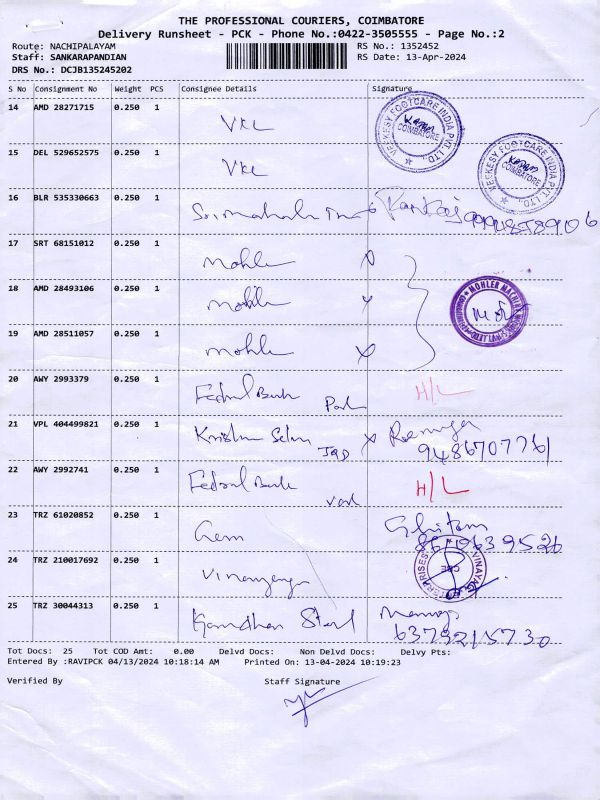 THE PROFESSIONAL COURIERS, COIMBATORE
Delivery Runsheet - PCK - Phone No.:0422-3505555 - Page No.:2
Route: NACHIPALAYAM
RS No.: 1352452
Staff: SANKARAPANDIAN
RS Date: 13-Apr-2024
DRS No.: DCJB135245202
S No Consignment No Weight PCS Consignee Details Signature
14 AMD 28271715 0.250 1 VKL
VEEKESY FOOTCARE INDIA PVT. LTD., COIMBATORE
15 DEL 529652575 0.250 1 VKL
VEEKESY FOOTCARE INDIA PVT. LTD., COIMBATORE
16 BLR 535330663 0.250 1 Pankaj
17 SRT 68151012 0.250 1 Mohler
18 AMD 28493106 0.250 1 Mohler
MOHLER
19 AMD 28511057 0.250 1 Mohler
20 AWY 2993379 0.250 1 Fedral Bank H/L
21 VPL 404499821 0.250 1 Krishna
22 AWY 2992741 0.250 1 Fedral Bank H/L
23 TRZ 61020852 0.250 1 Gem
24 TRZ 210017692 0.250 1
25 TRZ 30044313 0.250 1
Tot Docs: 25 Tot COD Amt: 0.00 Delvd Docs: Non Delvd Docs: Delvy Pts:
Entered By :RAVIPCK 04/13/2024 10:18:14 AM Printed On: 13-04-2024 10:19:23
Verified By Staff Signature